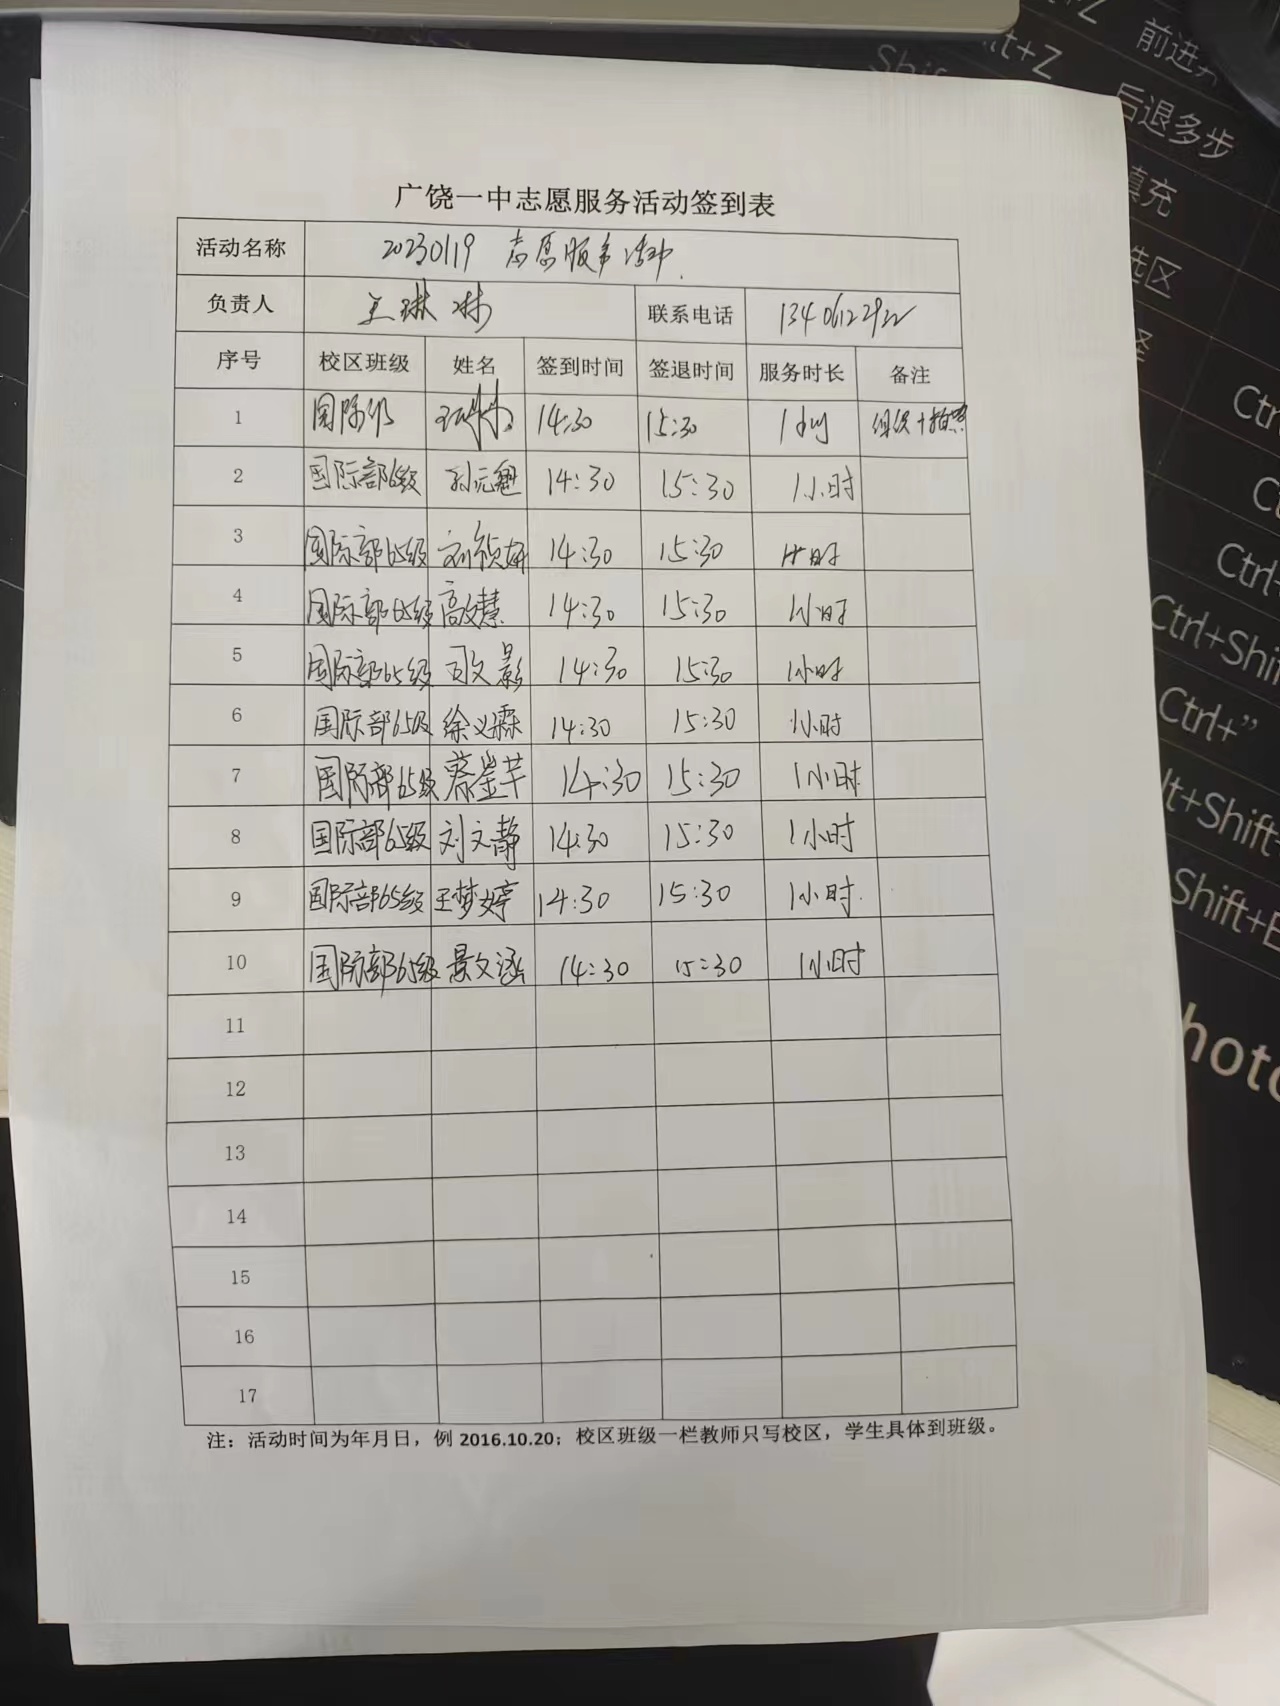 前进
Z
后退多步
填充
选区
Ctrl
Ctrl+Shi
Ctrl+”
lt+Shift+
Shift+E
hoto
广饶一中志愿服务活动签到表
活动名称 20230119 志愿服务活动
负责人 王琳琳 联系电话
序号 校区班级 姓名 签到时间 签退时间 服务时长 备注
1 国际部 王琳琳 14:30 15:30 1小时 组织+拍照
2 国际部65级 孙元魁 14:30 15:30 1小时
3 国际部65级 刘祯妍 14:30 15:30 1小时
4 国际部65级 高文慧 14:30 15:30 1小时
5 国际部65级 司文影 14:30 15:30 1小时
6 国际部65级 徐义霖 14:30 15:30 1小时
7 国际部65级 14:30 15:30 1小时
8 国际部65级 刘文静 14:30 15:30 1小时
9 国际部65级 王梦婷 14:30 15:30 1小时
10 国际部65级 景文涵 14:30 15:30 1小时
11
12
13
14
15
16
17
注：活动时间为年月日，例 2016.10.20；校区班级一栏教师只写校区，学生具体到班级。